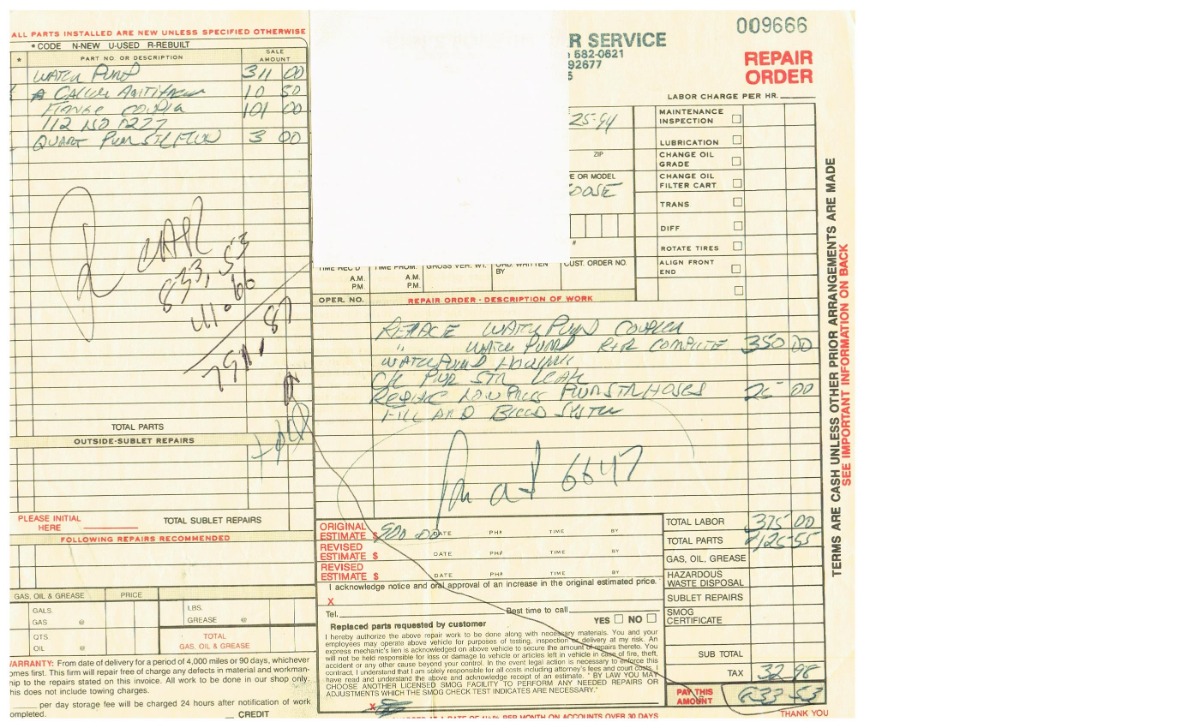 ALL PARTS INSTALLED ARE NEW UNLESS SPECIFIED OTHERWISE
* CODE N-NEW U-USED R-REBUILT
* PART NO. OR DESCRIPTION SALE AMOUNT
311 00
10 50
101 00
3 00
833.53
TOTAL PARTS
OUTSIDE-SUBLET REPAIRS
PLEASE INITIAL HERE
TOTAL SUBLET REPAIRS
FOLLOWING REPAIRS RECOMMENDED
GAS, OIL & GREASE PRICE
GALS. GAS @
LBS. GREASE @
QTS. OIL @
TOTAL GAS, OIL & GREASE
ARRANTY: From date of delivery for a period of 4,000 miles or 90 days, whichever
omes first. This firm will repair free of charge any defects in material and workman-
hip to the repairs stated on this invoice. All work to be done in our shop only.
his does not include towing charges.
per day storage fee will be charged 24 hours after notification of work
ompleted.
CREDIT
R SERVICE
582-0621
92677
5
009666
REPAIR ORDER
LABOR CHARGE PER HR.
25-94
ZIP
E OR MODEL
MAINTENANCE INSPECTION
LUBRICATION
CHANGE OIL GRADE
CHANGE OIL FILTER CART
TRANS
DIFF
ROTATE TIRES
ALIGN FRONT END
TIME REC'D A.M. P.M.
TIME PROM. A.M. P.M.
GROSS VER. WT.
ORD. WRITTEN BY
CUST. ORDER NO.
OPER. NO. REPAIR ORDER - DESCRIPTION OF WORK
REPLACE WATER PUMP COUPLER
" WATER PUMP R&R COMPLETE 350 00
WATER PUMP HOUSING
CK PWR STR LEAK
REPLACE LOW PRESS PWR STR HOSES 25 00
FILL AND BLEED SYSTEM
6647
ORIGINAL ESTIMATE $ 900 00 DATE PH# TIME BY
REVISED ESTIMATE $ DATE PH# TIME BY
REVISED ESTIMATE $ DATE PH# TIME BY
I acknowledge notice and oral approval of an increase in the original estimated price.
X
Tel. Best time to call
Replaced parts requested by customer YES NO
I hereby authorize the above repair work to be done along with necessary materials. You and your
employees may operate above vehicle for purposes of testing, inspection or delivery at my risk. An
express mechanic's lien is acknowledged on above vehicle to secure the amount of repairs thereto. You
will not be held responsible for loss or damage to vehicle or articles left in vehicle in case of fire, theft,
accident or any other cause beyond your control. In the event legal action is necessary to enforce this
contract, I understand that I am solely responsible for all costs including attorney's fees and court costs. I
have read and understand the above and acknowledge receipt of an estimate. " BY LAW YOU MAY
CHOOSE ANOTHER LICENSED SMOG FACILITY TO PERFORM ANY NEEDED REPAIRS OR
ADJUSTMENTS WHICH THE SMOG CHECK TEST INDICATES ARE NECESSARY."
X
PER MONTH ON ACCOUNTS OVER 30 DAYS
TOTAL LABOR 375 00
TOTAL PARTS 425-55
GAS, OIL, GREASE
HAZARDOUS WASTE DISPOSAL
SUBLET REPAIRS
SMOG CERTIFICATE
SUB TOTAL
TAX 32 98
PAY THIS AMOUNT 833 53
THANK YOU
TERMS ARE CASH UNLESS OTHER PRIOR ARRANGEMENTS ARE MADE
SEE IMPORTANT INFORMATION ON BACK